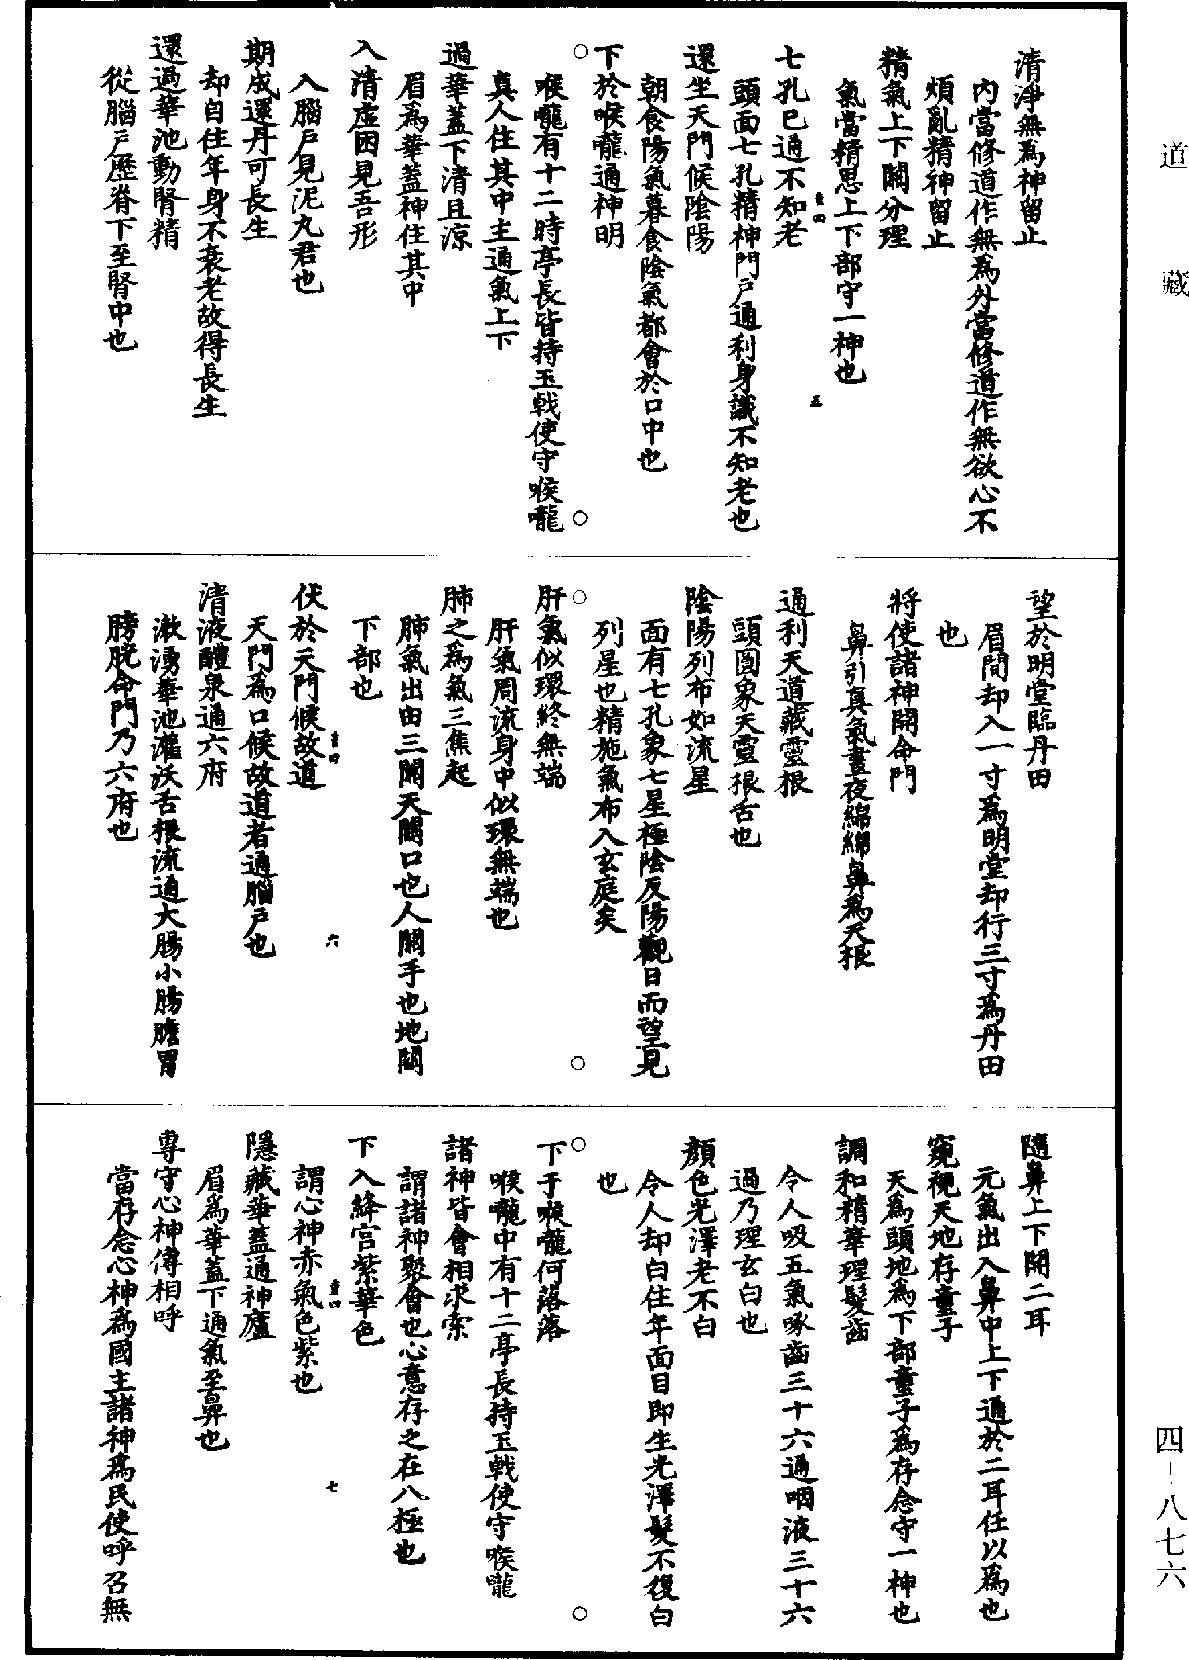 道藏
清淨無爲神留止
內當修道作無爲外當修道作無欲心不
煩亂精神留止
精氣上下關分理
氣當精思上下部守一神也
七孔已通不知老
頭面七孔精神門戶通利身識不知老也
還坐天門候陰陽
朝食陽氣暮食陰氣都會於口中也
下於喉嚨通神明
喉嚨有十二時亭長皆持玉戟使守喉嚨
真人住其中主通氣上下
過華蓋下清且涼
眉爲華蓋神住其中
入清虛困見吾形
入腦戶見泥丸君也
期成還丹可長生
却自住年身不衰老故得長生
還過華池動腎精
從腦戶歷脊下至腎中也
五
望於明堂臨丹田
眉間却入一寸爲明堂却行三寸爲丹田
也
將使諸神開命門
鼻引真氣晝夜綿綿鼻爲天根
通利天道藏靈根
頭圓象天靈根舌也
陰陽列布如流星
面有七孔象七星極陰反陽觀日而望見
列星也精施氣布入玄庭矣
肝氣似環終無端
肝氣周流身中似環無端也
肺之爲氣三焦起
肺氣出由三關天關口也人關手也地關
下部也
伏於天門候故道
天門爲口候故道者通腦戶也
清液醴泉通六府
漱湧華池灌沃舌根流通大腸小腸膽胃
膀胱命門乃六府也
六
隨鼻上下開二耳
元氣出入鼻中上下通於二耳任以爲也
窺視天地存童子
天爲頭地爲下部童子爲存念守一神也
調和精華理髮齒
令人吸五氣啄齒三十六通咽液三十六
過乃理玄白也
顏色光澤老不白
令人却白住年面目即生光澤髮不復白
也
下于喉嚨何落落
喉嚨中有十二亭長持玉戟使守喉嚨
諸神皆會相求索
謂諸神聚會也心意存之在八極也
下入絳宮紫華色
謂心神赤氣色紫也
隱藏華蓋通神廬
眉爲華蓋下通氣至鼻也
專守心神傳相呼
當存念心神爲國主諸神爲民使呼召無
七
四-八七六